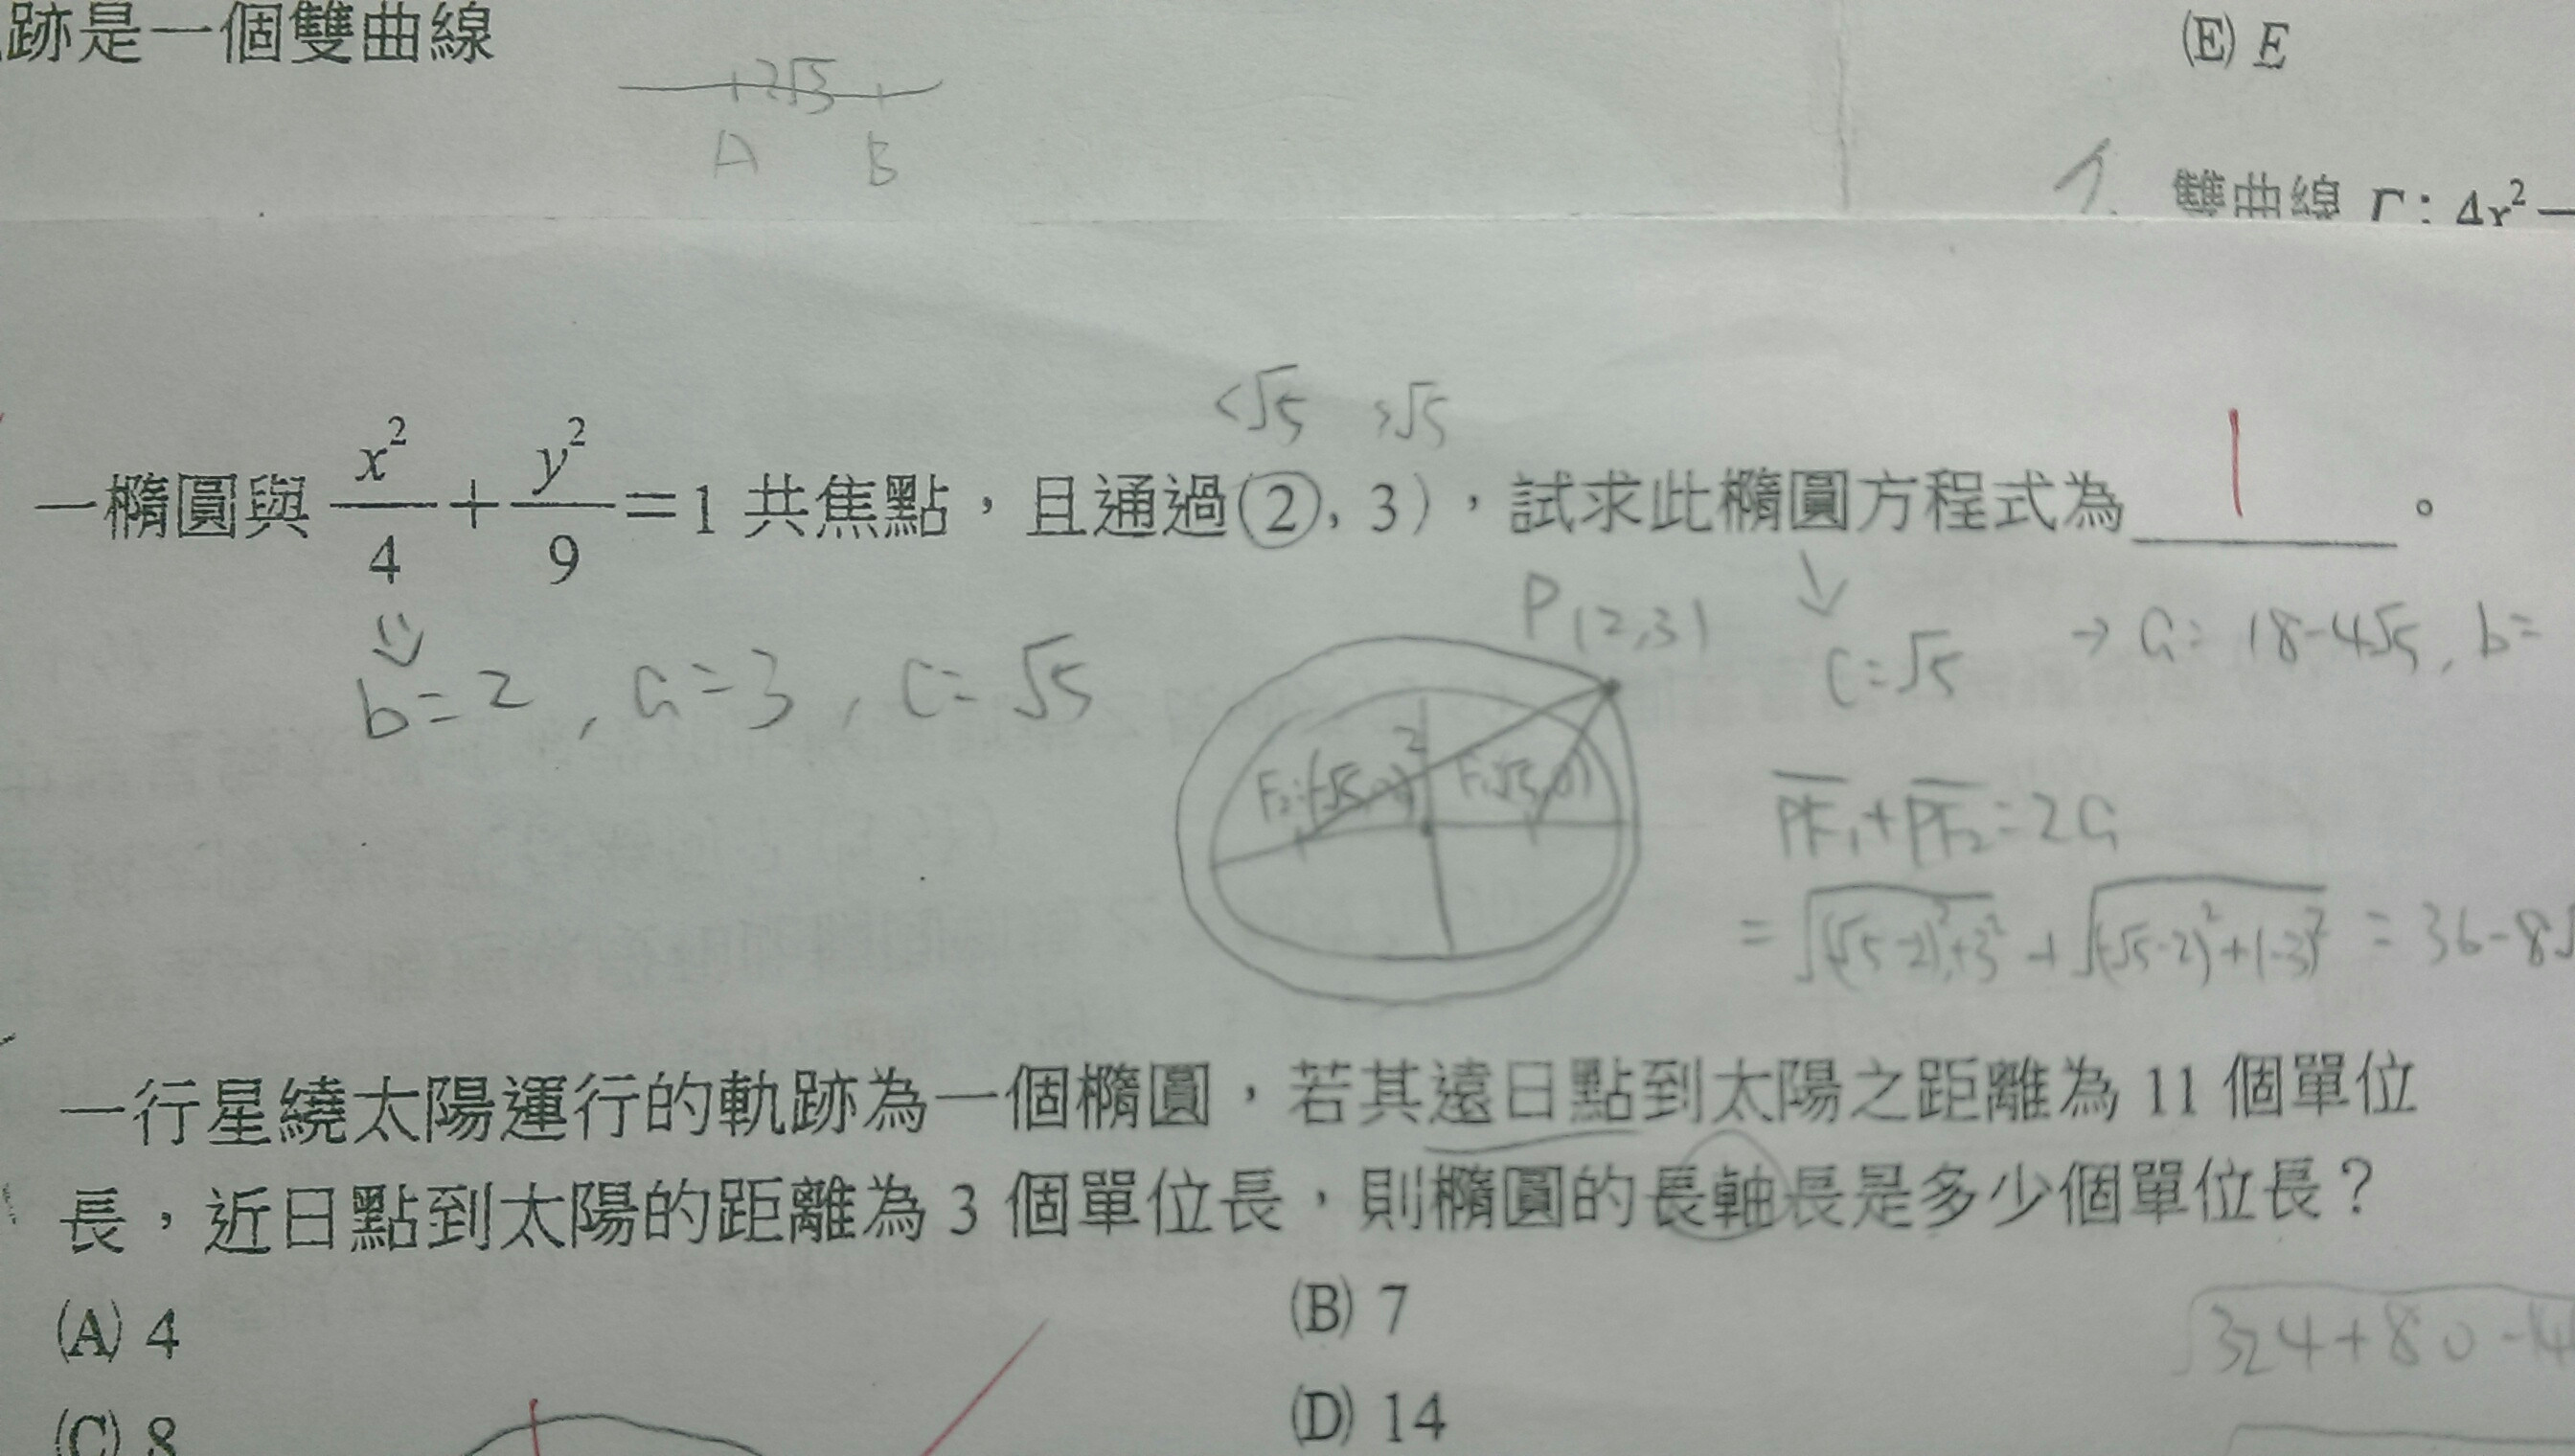 跡是一個雙曲線
2√5
A B
(E) E
雙曲線 Γ : 4x² −
<√5 >√5
一橢圓與 x²/4 + y²/9 = 1 共焦點,且通過(2, 3),試求此橢圓方程式為______。
b=2 , a=3 , c=√5
P(2,3)
c=√5 → a= 18-4√5, b=
PF₁+PF₂=2a
= √(√5-2)²+3² + √(-√5-2)²+(-3)² = 36-8√
一行星繞太陽運行的軌跡為一個橢圓,若其遠日點到太陽之距離為 11 個單位
長,近日點到太陽的距離為 3 個單位長,則橢圓的長軸長是多少個單位長?
(A) 4
(B) 7
√324+80-14
(C) 8
(D) 14